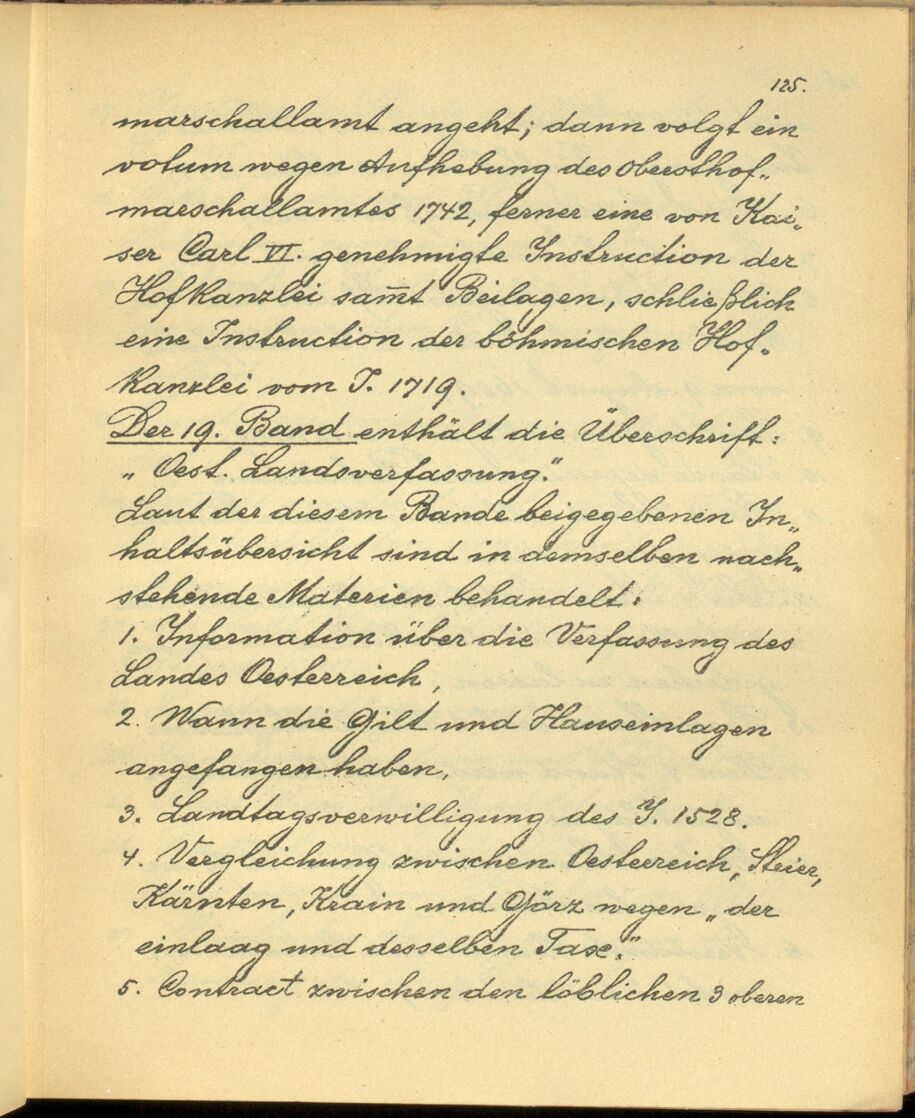 125.
marschallamt angeht; dann volgt ein
votum wegen Aufhebung des Obersthof„
marschallamtes 1742, ferner eine von Kai„
ser Carl VI. genehmigte Instruction der
Hofkanzlei sam̅t Beilagen, schließlich
eine Instruction der böhmischen Hof„
kanzlei vom J. 1719.
Der 19. Band enthält die Überschrift:
„Oest. Landsverfassung."
Laut der diesem Bande beigegebenen In„
haltsübersicht sind in demselben nach„
stehende Materien behandelt:
1. Information über die Verfassung des
Landes Oesterreich,
2. Wann die Gilt und Hauseinlagen
angefangen haben,
3. Landtagsverwilligung des J. 1528.
4. Vergleichung zwischen Oesterreich, Steier,
Kärnten, Krain und Görz wegen „der
einlaag und desselben Taxe."
5. Contract zwischen den löblichen 3 oberen